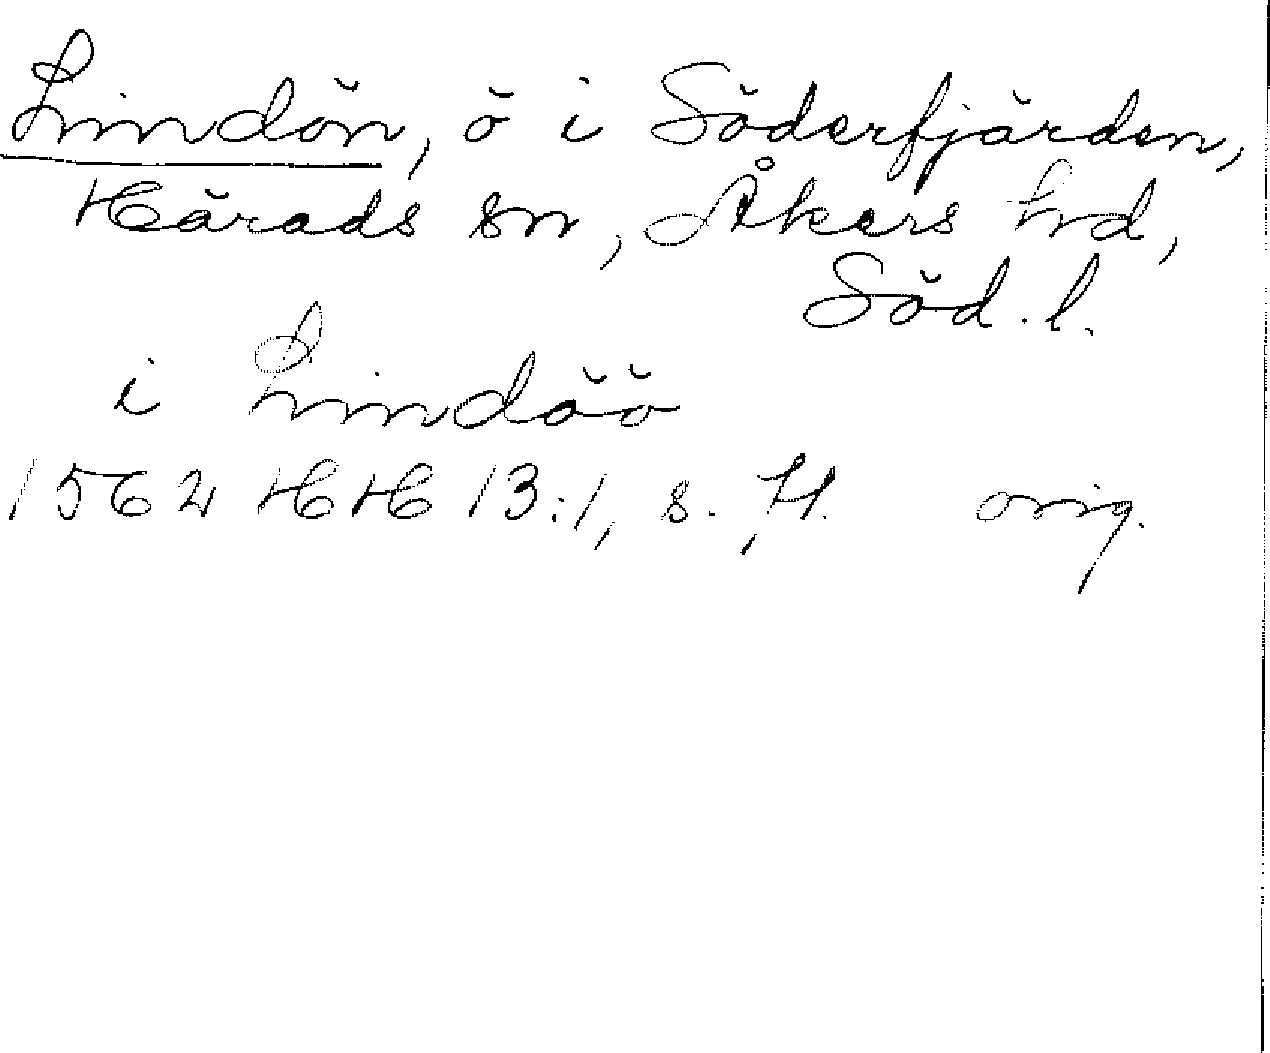 Lindön, ö i Söderfjärden,
Härads sn, Åkers hd,
Söd. l.
i Lindöö
1562 HH 13:1, s. orig.